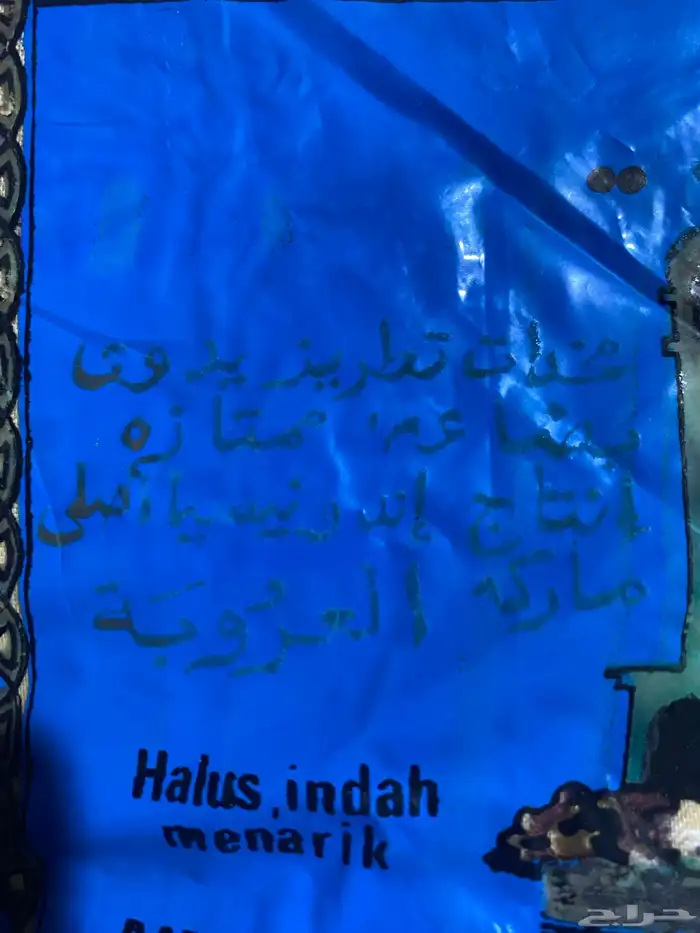 تطريز يدوي
بضاعه ممتازه
إنتاج إندونيسيا أصلي
ماركة العروبَة
Halus, indah
menarik
حراج